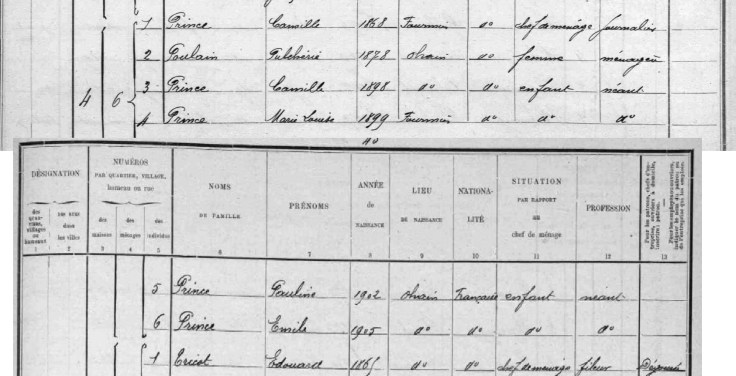 1 Prince Camille 1868 Fourmies do chef de ménage journalier
2 Poulain Pulchérie 1878 Ohain do femme ménagère
3 Prince Camille 1898 do do enfant néant
4 6 4 Prince Marie Louise 1899 Fourmies do do do
DÉSIGNATION
NUMÉROS
PAR QUARTIER, VILLAGE,
hameau ou rue
des quartiers, villages ou hameaux
des rues dans les villes
des maisons
des ménages
des individus
NOMS
DE FAMILLE
PRÉNOMS
ANNÉE
de
NAISSANCE
LIEU
DE NAISSANCE
NATIONALITÉ
SITUATION
PAR RAPPORT
au
chef de ménage
PROFESSION
1 2 3 4 5 6 7 8 9 10 11 12 13
5 Prince Pauline 1902 Ohain Française enfant néant
6 Prince Emile 1905 do do do do
1 Tricot Edouard do do chef de ménage fileur